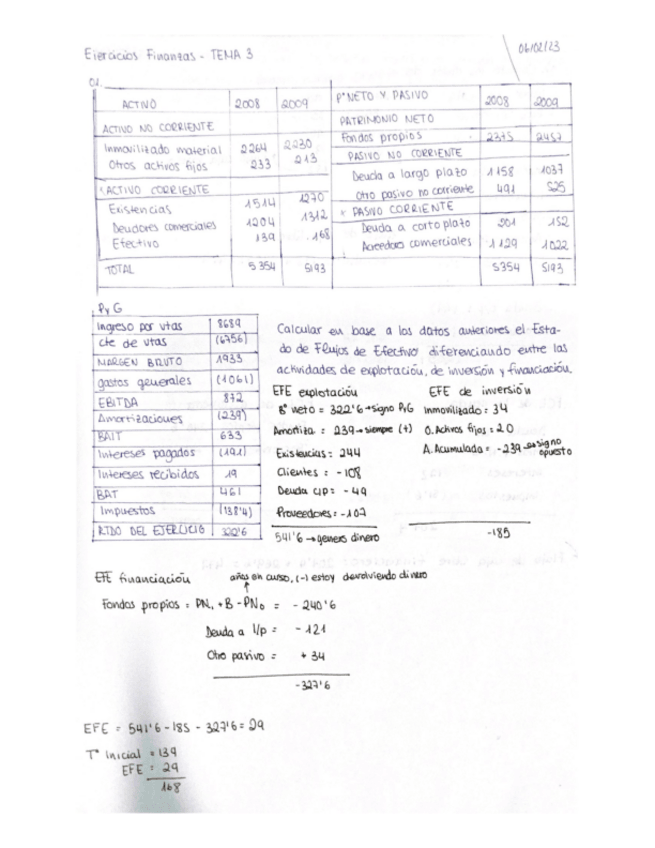 Ejercicios Finanzas - TEMA 3
06/02/23
01.
ACTIVO 2008 2009
ACTIVO NO CORRIENTE
Inmovilizado material 2264 2230
Otros activos fijos 233 213
ACTIVO CORRIENTE
Existencias 1514 1270
Deudores comerciales 1204 1312
Efectivo 139 168
TOTAL 5354 5193
Pº NETO Y PASIVO 2008 2009
PATRIMONIO NETO
Fondos propios 2375 2457
PASIVO NO CORRIENTE
Deuda a largo plazo 1158 1037
Otro pasivo no corriente 491 525
* PASIVO CORRIENTE
Deuda a corto plazo 201 152
Acreedores comerciales 1129 1022
5354 5193
PyG
Ingreso por vtas 8689
cte de vtas (6756)
MARGEN BRUTO 1933
gastos generales (1061)
EBITDA 872
Amortizaciones (239)
BAIT 633
Intereses pagados (191)
Intereses recibidos 19
BAT 461
Impuestos (138'4)
RTDO DEL EJERCICIO 322'6
Calcular en base a los datos anteriores el Esta-
do de Flujos de Efectivo diferenciando entre las
actividades de explotación, de inversión y financiación.
EFE explotación
Bº neto = 322'6 → signo PyG
Amortiza = 239 → siempre (+)
Existencias = 244
Clientes = -108
Deuda c/p = -49
Proveedores = -107
541'6 → genero dinero
EFE de inversión
Inmovilizado = 34
O. Activos fijos = 20
A. Acumulada = -239 → signo
opuesto
-185
EFE financiación
años en curso, (-) estoy devolviendo dinero
Fondos propios = PN₁ + B - PN₀ = - 240'6
Deuda a l/p = - 121
Otro pasivo = + 34
-327'6
EFE = 541'6 - 185 - 327'6 = 29
Tº Inicial = 139
EFE = 29
168